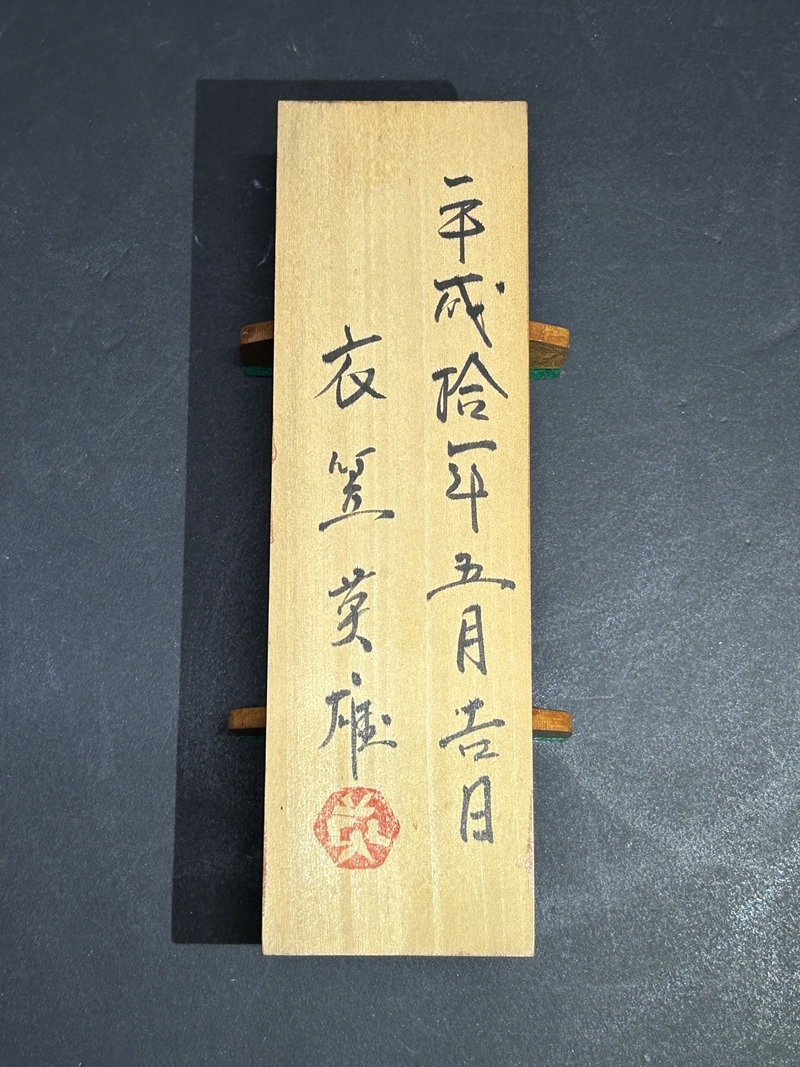 平成拾一年五月吉日
衣笠英雄
英